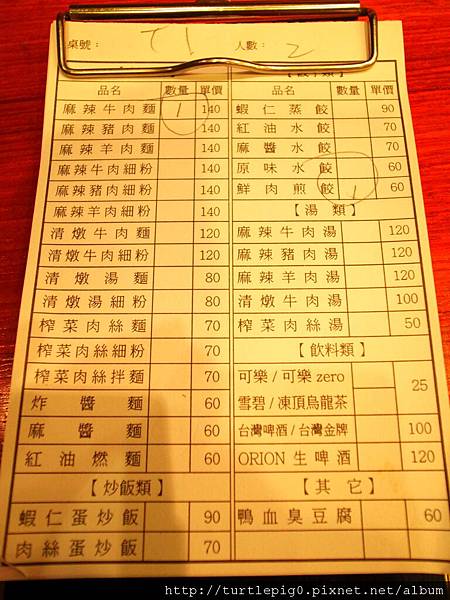 桌號： T1 人數： 2
品名 數量 單價
麻辣牛肉麵 1 140
麻辣豬肉麵 140
麻辣羊肉麵 140
麻辣牛肉細粉 140
麻辣豬肉細粉 140
麻辣羊肉細粉 140
清燉牛肉麵 120
清燉牛肉細粉 120
清燉湯麵 80
清燉湯細粉 80
榨菜肉絲麵 70
榨菜肉絲細粉 70
榨菜肉絲拌麵 70
炸醬麵 60
麻醬麵 60
紅油燃麵 60
【炒飯類】
蝦仁蛋炒飯 90
肉絲蛋炒飯 70
品名 數量 單價
蝦仁蒸餃 90
紅油水餃 70
麻醬水餃 70
原味水餃 60
鮮肉煎餃 1 60
【湯類】
麻辣牛肉湯 120
麻辣豬肉湯 120
麻辣羊肉湯 120
清燉牛肉湯 100
榨菜肉絲湯 50
【飲料類】
可樂/可樂zero 25
雪碧/凍頂烏龍茶
台灣啤酒/台灣金牌 100
ORION生啤酒 120
【其它】
鴨血臭豆腐 60
http://turtlepig0.pixnet.net/album